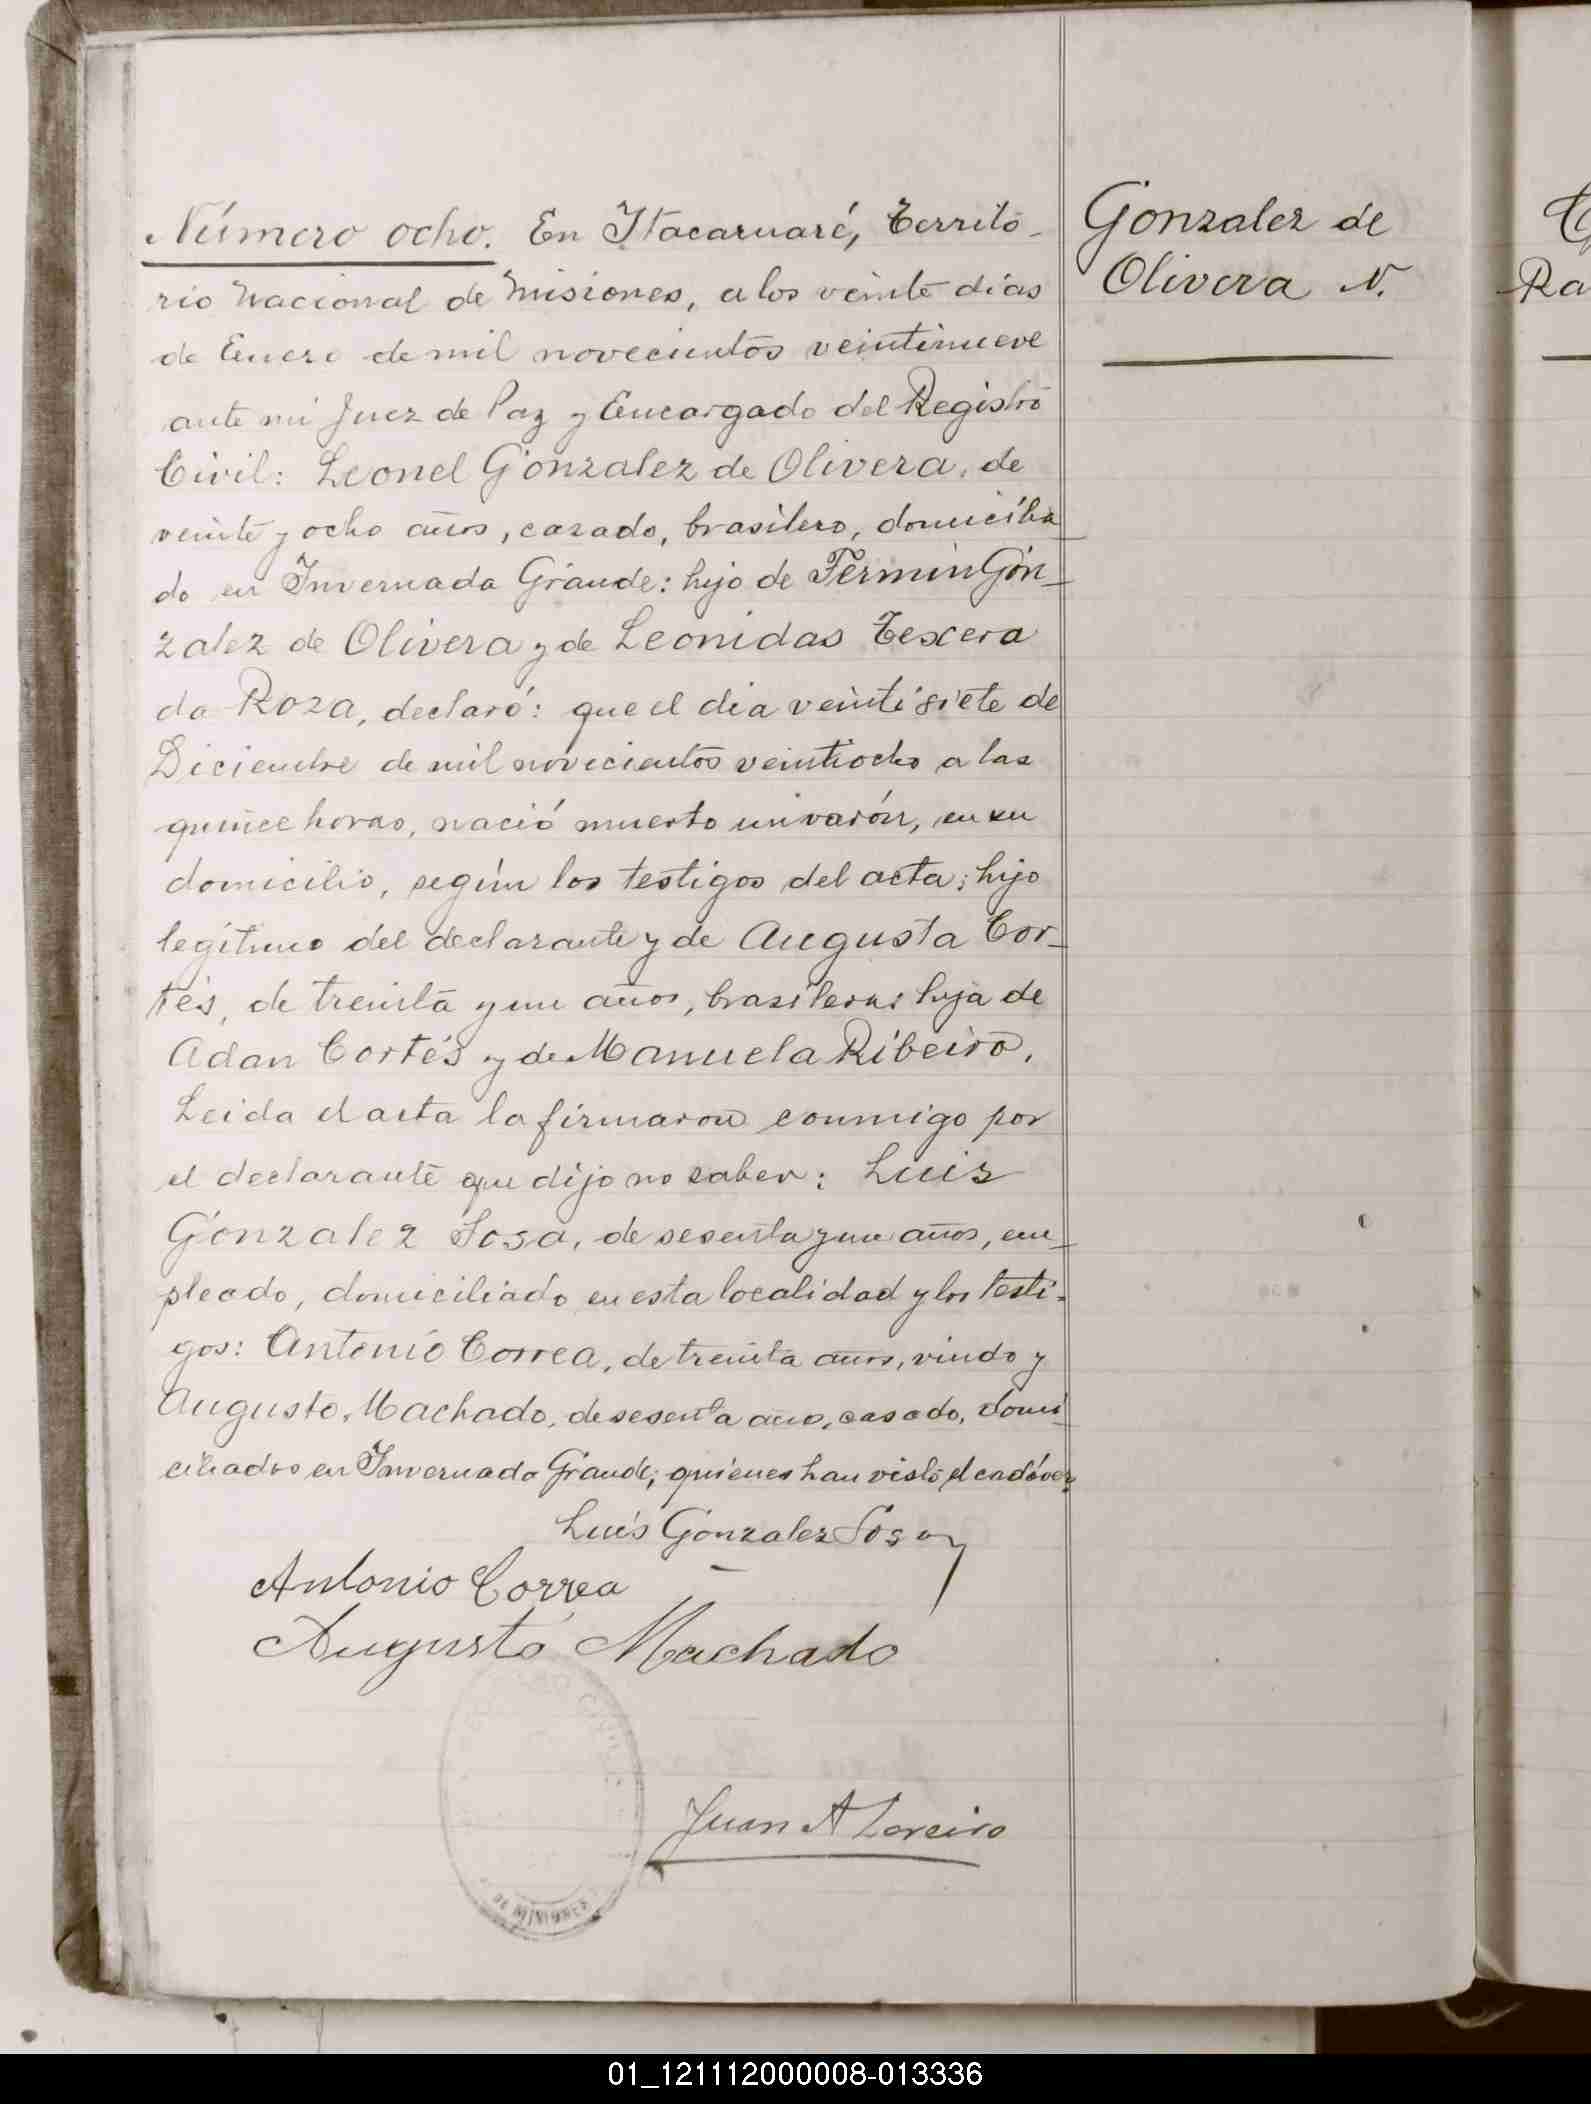 Número ocho. En Itacaruaré, Territo-
rio Nacional de Misiones, a los veinte dias
de Enero de mil novecientos veintinueve
ante mi Juez de Paz y Encargado del Registro
Civil: Leonel Gonzalez de Olivera, de
veinte y ocho años, casado, brasilero, domicilia
do en Invernada Grande: hijo de Fermin Gon-
zalez de Olivera y de Leonidas Texera
da Roza, declaró: que el dia veintisiete de
Diciembre de mil novecientos veintiocho a las
quince horas, nació muerto un varón, en su
domicilio, según los testigos del acta; hijo
legítimo del declarante y de Augusta Cor-
tés, de treinta y un años, brasilera; hija de
Adan Cortés y de Manuela Ribeiro.
Leida el acta la firmaron conmigo por
el declarante que dijo no saber: Luis
Gonzalez Sosa, de sesenta y un años, em-
pleado, domiciliado en esta localidad y los testi-
gos: Antonio Correa, de treinta años, viudo y
Augusto Machado, de sesenta años, casado, domi
ciliados en Invernada Grande; quienes han visto el cadáver.
Luis Gonzalez Sosa
Antonio Correa
Augusto Machado
REGISTRO CIVIL
DE MISIONES
Juan A Loreiro
Gonzalez de
Olivera N.
Ra
01_121112000008-013336